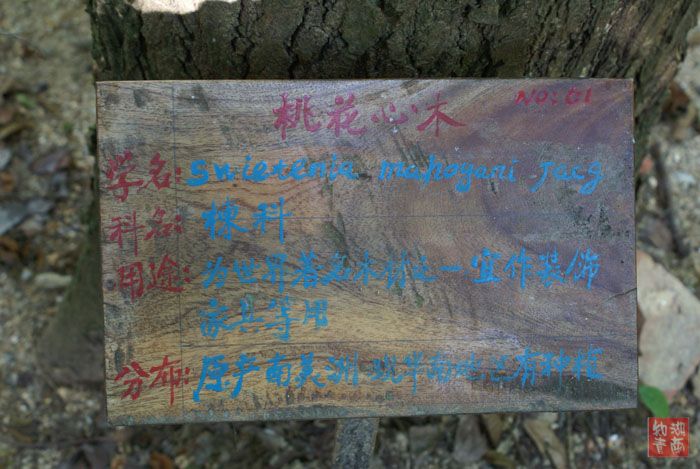 桃花心木 NO: 61
学名: Swietenia mahogani Jacg
科名: 楝科
用途: 为世界著名木材之一宜作装饰
家具等用
分布: 原产南美洲 现华南地区有种植